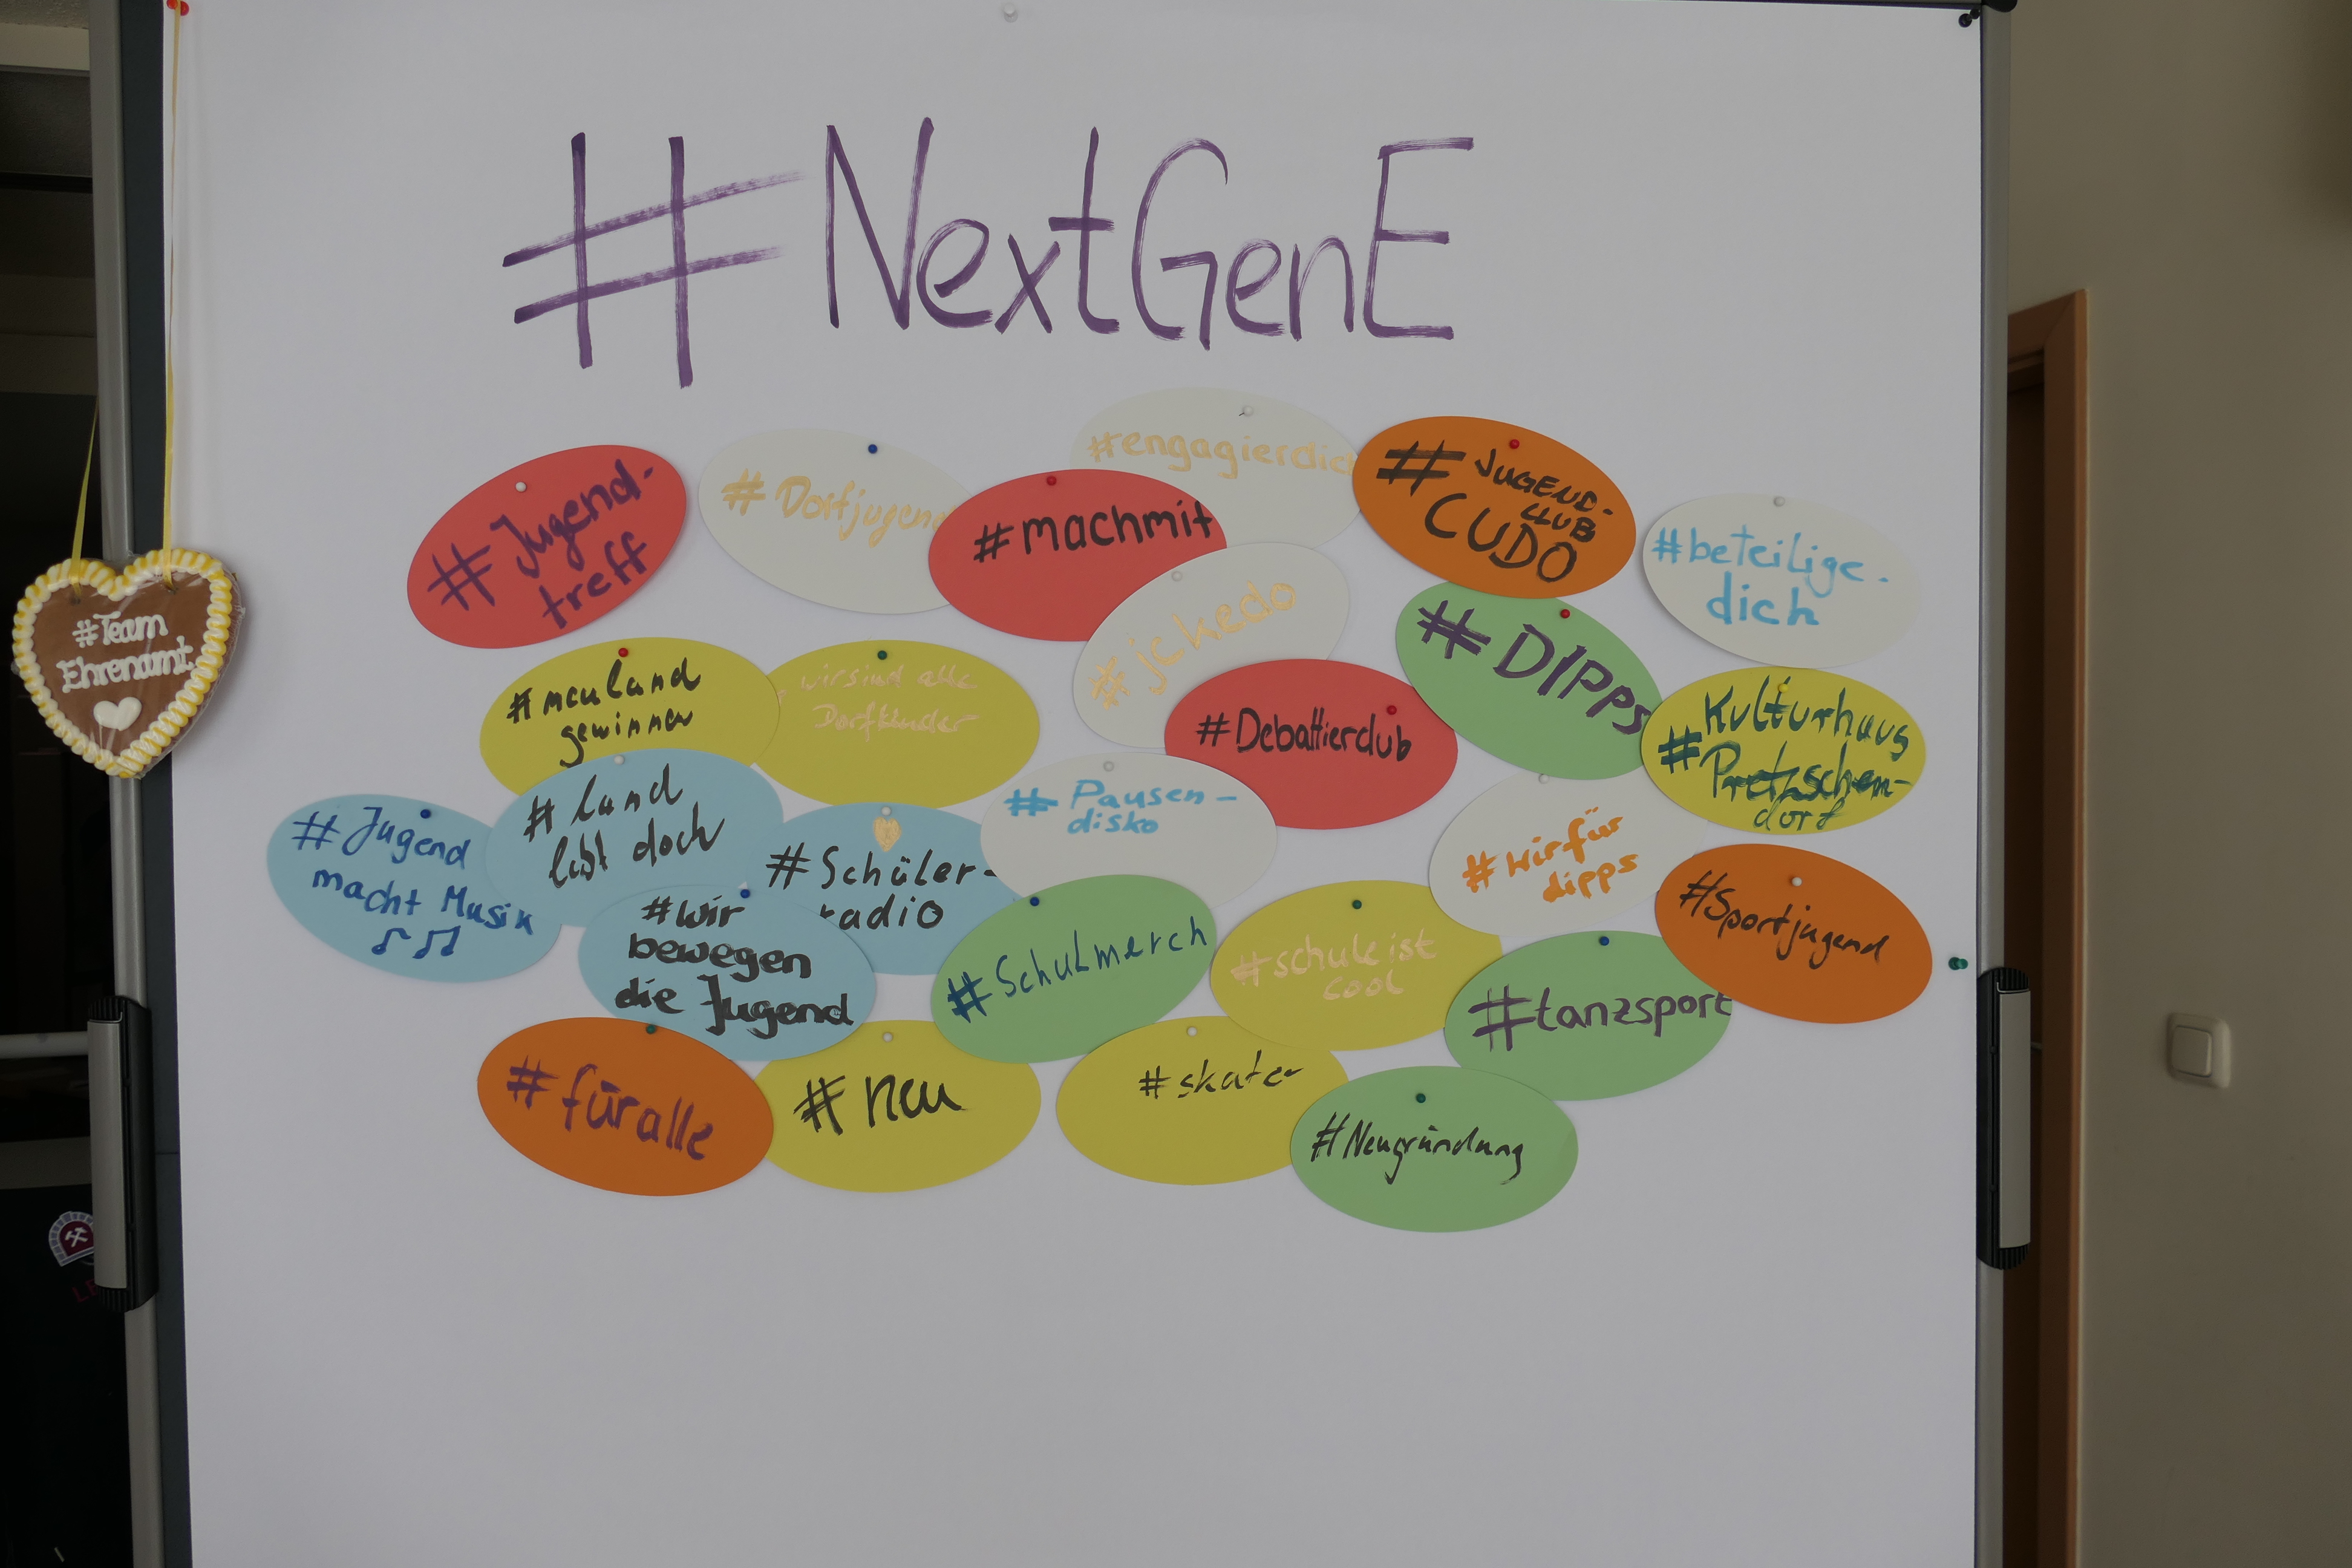 #NextGenE
#Team
Ehrenamt
#Jugend-
treff
#Dorfjugend
#engagierdich
#machmit
#JUGEND-
CLUB
CUDO
#beteilige-
dich
#jckedo
#DIPPS
#neuland
gewinnen
wir sind alle
Dorfkinder
#Debattierclub
#Kulturhaus
Pretzschen-
dorf
#Jugend
macht Musik
#Land
lebt doch
#Schüler-
radio
#Pausen-
disko
#wirfür
dipps
#Sportjugend
#wir
bewegen
die Jugend
#Schulmerch
#schule ist
cool
#tanzsport
#für alle
#neu
#skater
#Neugründung